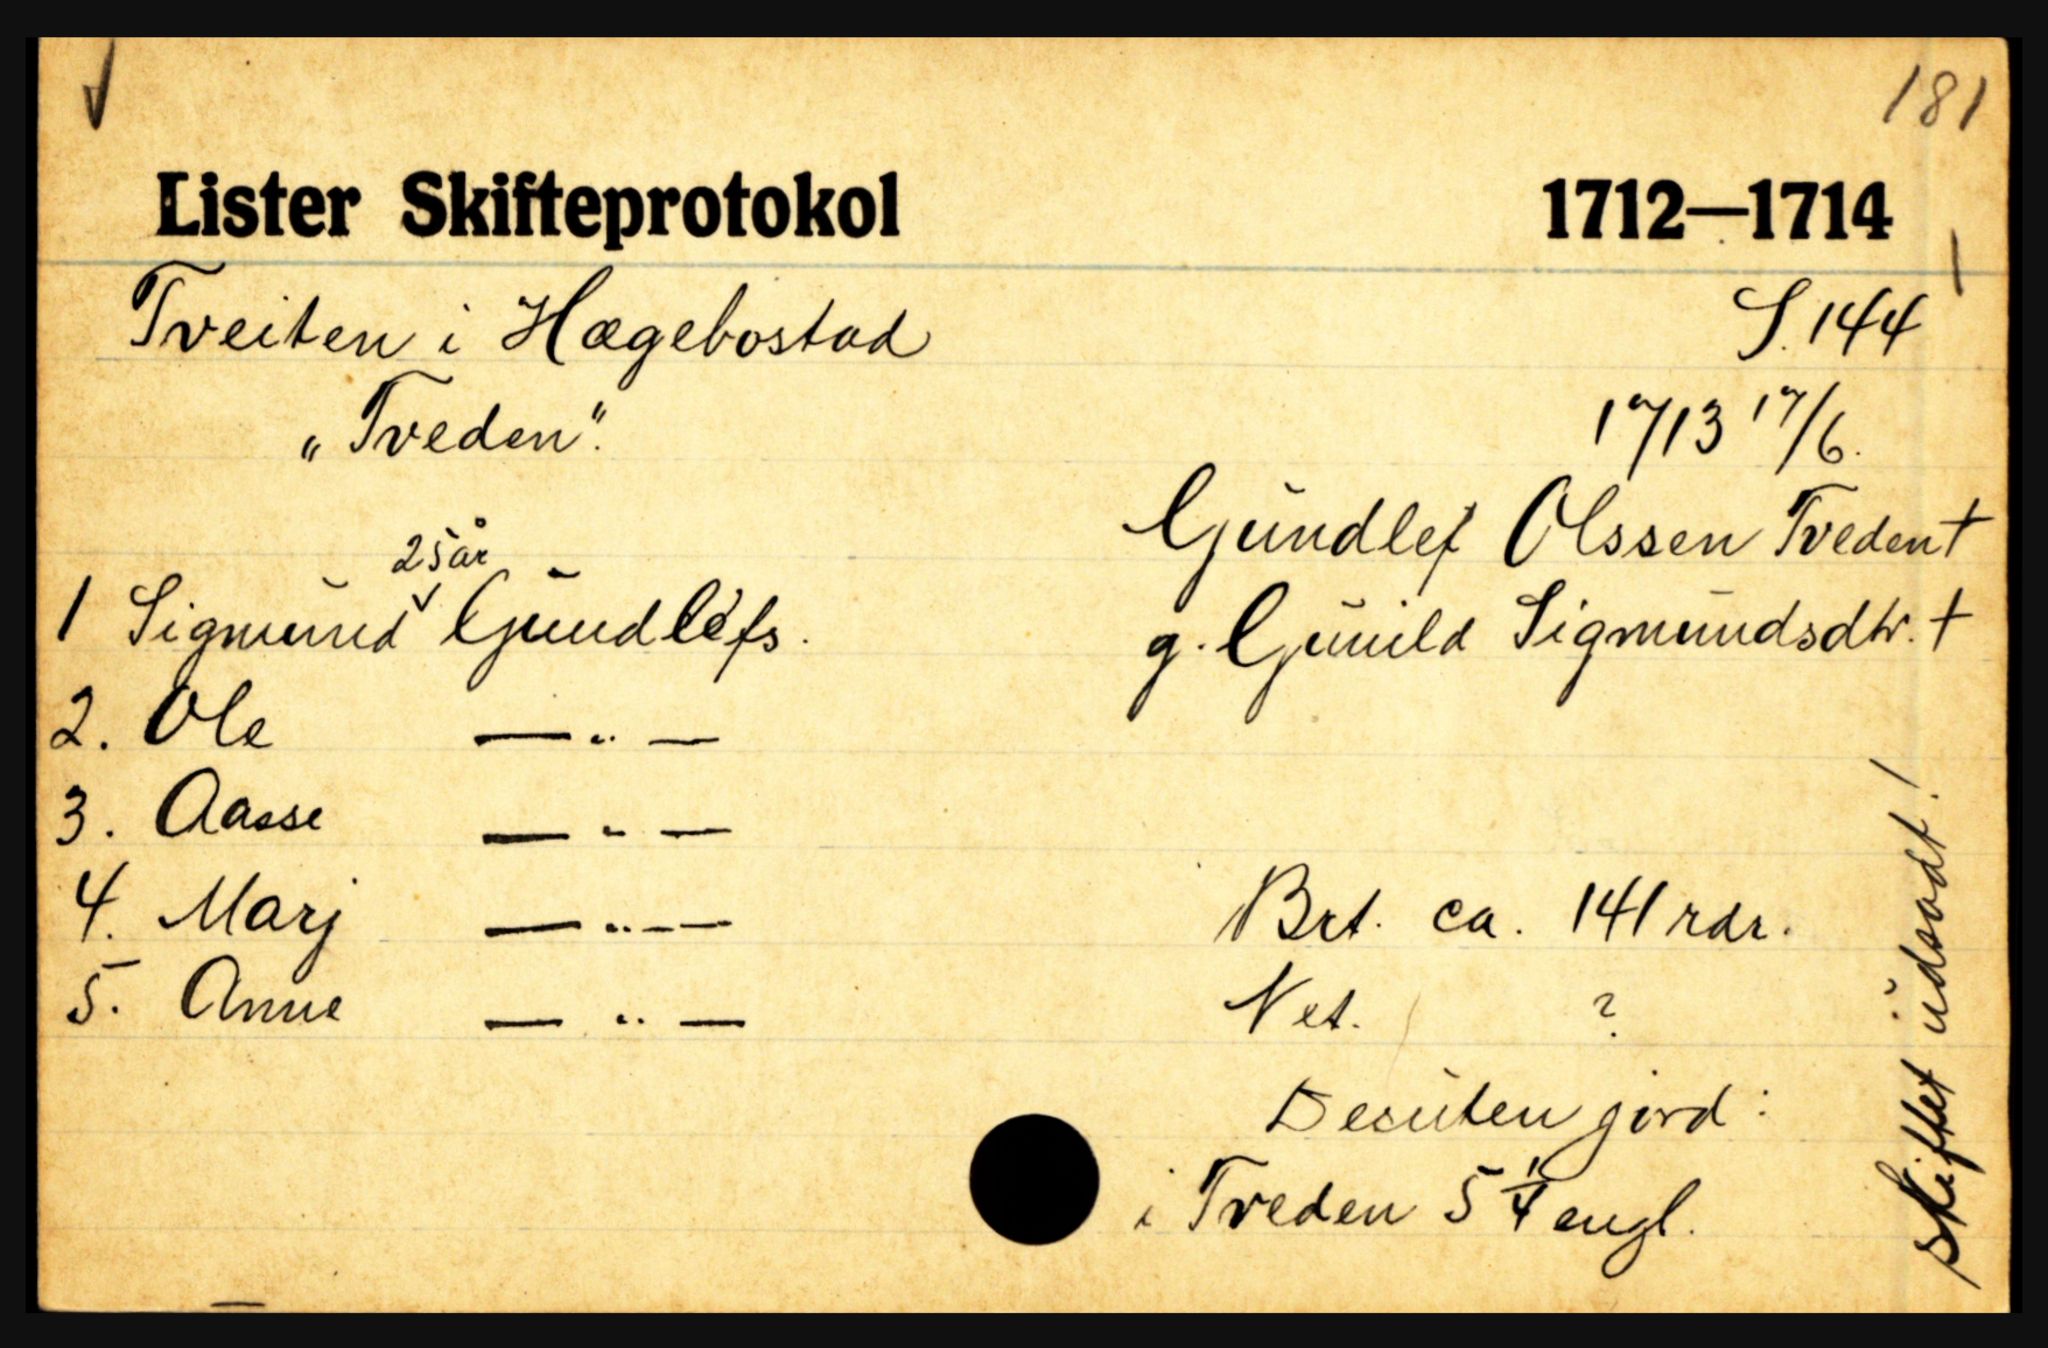 181
Lister Skifteprotokol 1712—1714
Tveiten i Hægebostad S. 144
„Tveden". 1713 17/6.
Gundlef Olssen Tveden †
25 år
1 Sigmund Gundlefs. g. Gunild Sigmundsdtr. †
2. Ole —〃—
3. Aasse —〃—
4. Marj —〃—
5. Anne —〃—
Brt. ca. 141 rdr.
Net. ?
Desuten jord:
i Tveden 5 1/4 engl.
skiftet udsadt!